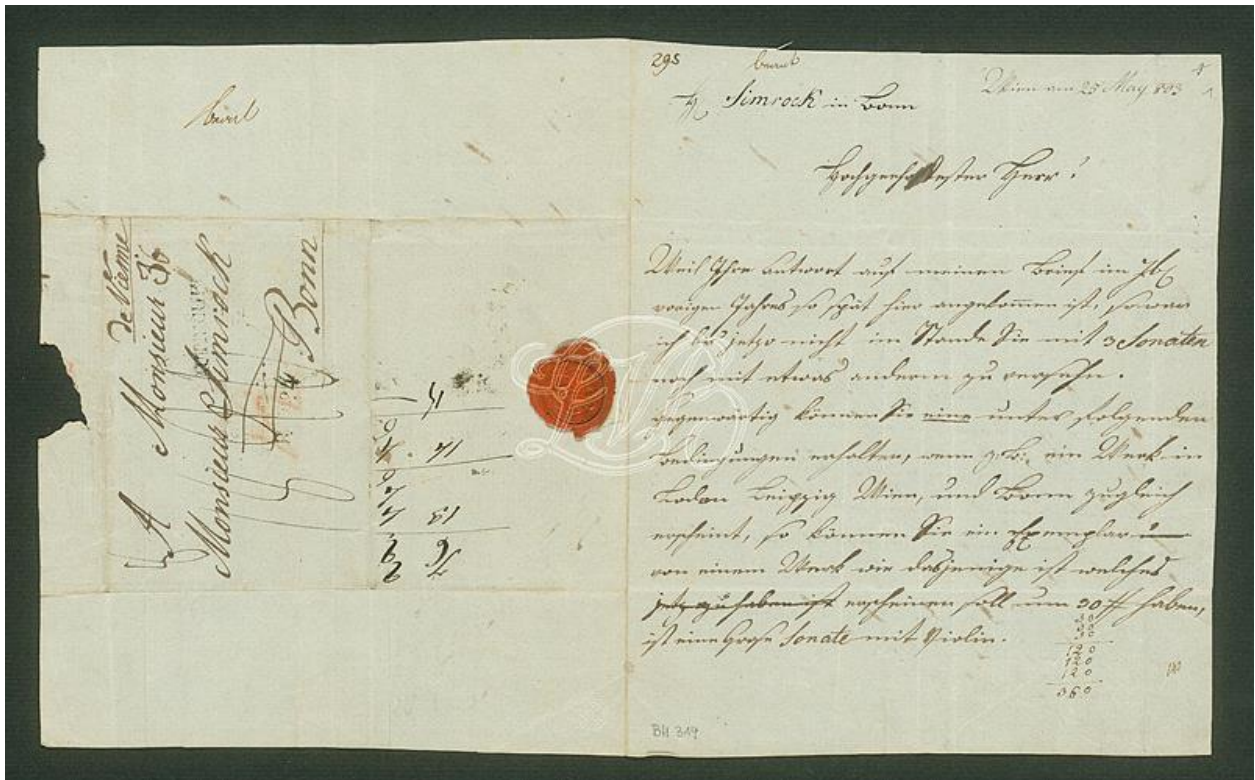 beant
de Vienne
A
Monsieur
Monsieur Simrock
Bonn
295 beant
H. Simrock in Bonn
Wien am 25 May 803
Hochgeehrtester Herr!
Weil Ihre Antwort auf meinen Brief im
vorigen Jahres so spät hier angekommen ist, so war
ich bis jetzo nicht im Stande Sie mit 3 Sonaten
noch mit etwas anderm zu versehn.
Gegenwärtig können Sie eine unter folgenden
Bedingungen erhalten, wenn z.B: ein Werk in
Lodon Leipzig Wien, und Bonn zugleich
erscheint, so können Sie ein Exemplar
von einem Werk wie dasjenige ist welches
jetz zu haben ist erscheinen soll um 30 # haben,
ist eine große Sonate mit Violin.
120
120
120
360
BH 319